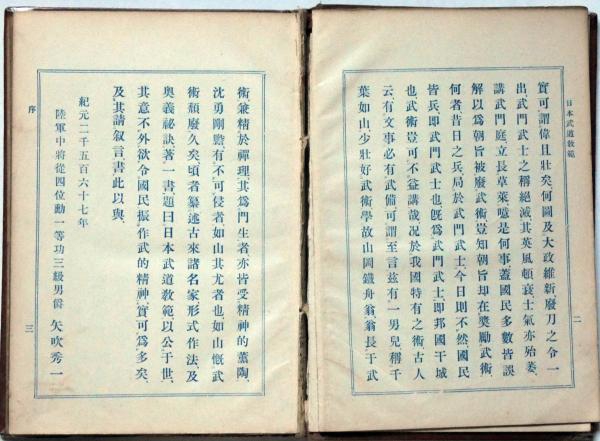 日本武道教範
二
實可謂偉且壯矣、何圖及大政維新廢刀之令一
出、武門武士之稱絕滅、其英風頓衰、士氣亦殆萎、
講武門庭立長草萊、噫是何事、蓋國民多數皆誤
解以爲朝旨被廢武術、豈知朝旨却在奬勵武術、
何者、昔日之兵局於武門武士、今日則不然、國民
皆兵、卽武門武士也、旣爲武門武士、卽邦國干城
也、武術豈可不益講哉、况於我國特有之術、古人
云、有文事必有武備、可謂至言、玆有一男兒、稱千
葉如山、少壯好武術、學故山岡鐵舟翁、翁長于武
術、兼精於禪理、其爲門生者、亦皆受精神的薰陶、
沈勇剛膽、有不可侵者、如山其尤者也、如山慨武
術頹廢久矣、頃者纂述古來諸名家形式作法及
奧義祕訣、著一書、題曰日本武道敎範、以公于世、
其意不外欲令國民振作武的精神、實可爲多矣、
及其請叙言、書此以與、
紀元二千五百六十七年
陸軍中將從四位勳一等功三級男爵 矢吹秀一
序
三